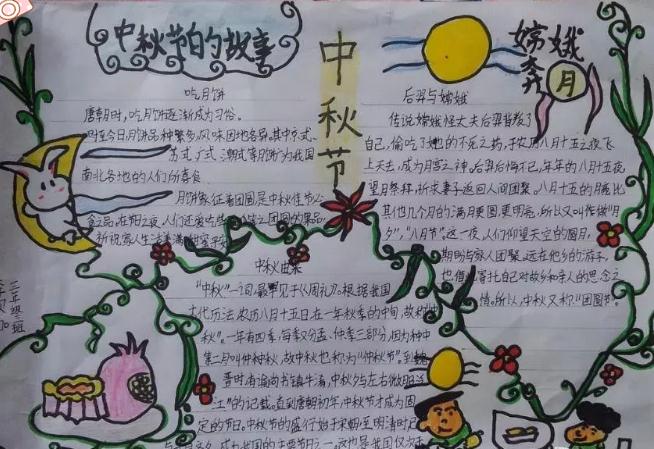 中秋节的故事
中秋节
嫦娥奔月
吃月饼
唐朝时，吃月饼逐渐成为习俗。
时至今日，月饼品种繁多，风味因地各异。其中京式、
苏式、广式、潮式等月饼为我国
南北各地的人们所喜食
月饼象征着团圆是中秋佳节必
食之品。在节日之夜，人们还爱吃些
团圆的果品
祈祝家人生活美满甜
后羿与嫦娥
传说嫦娥怪丈夫后羿背叛了
自己，偷吃了她的不死之药，于农历八月十五之夜飞
上天去，成为月宫之神。后羿后悔不已，年年的八月十五夜
望月祭拜，祈求妻子返回人间团聚。八月十五的月亮比
其他几个月的满月更圆，更明亮，所以又叫作做“月
夕”，“八月节”。这一夜，人们仰望天空的圆月，
期盼与家人团聚，远在他乡的游子，
也借此寄托自己对故乡和亲人的思念之
情。所以，中秋又称“团圆节”。
中秋由来
“中秋”一词，最早见于《周礼》。根据我国
古代历法，农历八月十五日在一年秋季的中旬，故称“中
秋”。一年有四季，每季又分孟、仲、季三部分，因为秋中
第二月叫仲秋，故中秋也称为“仲秋节”。到魏
晋时，有谕尚书镇牛渚，中秋夕与左右微服泛
江”的记载。直到唐朝初年，中秋节才成为固
定的节日。中秋节的盛行始于宋朝，至明清时已
成为我国的主要节日之一。这也是我国仅次于